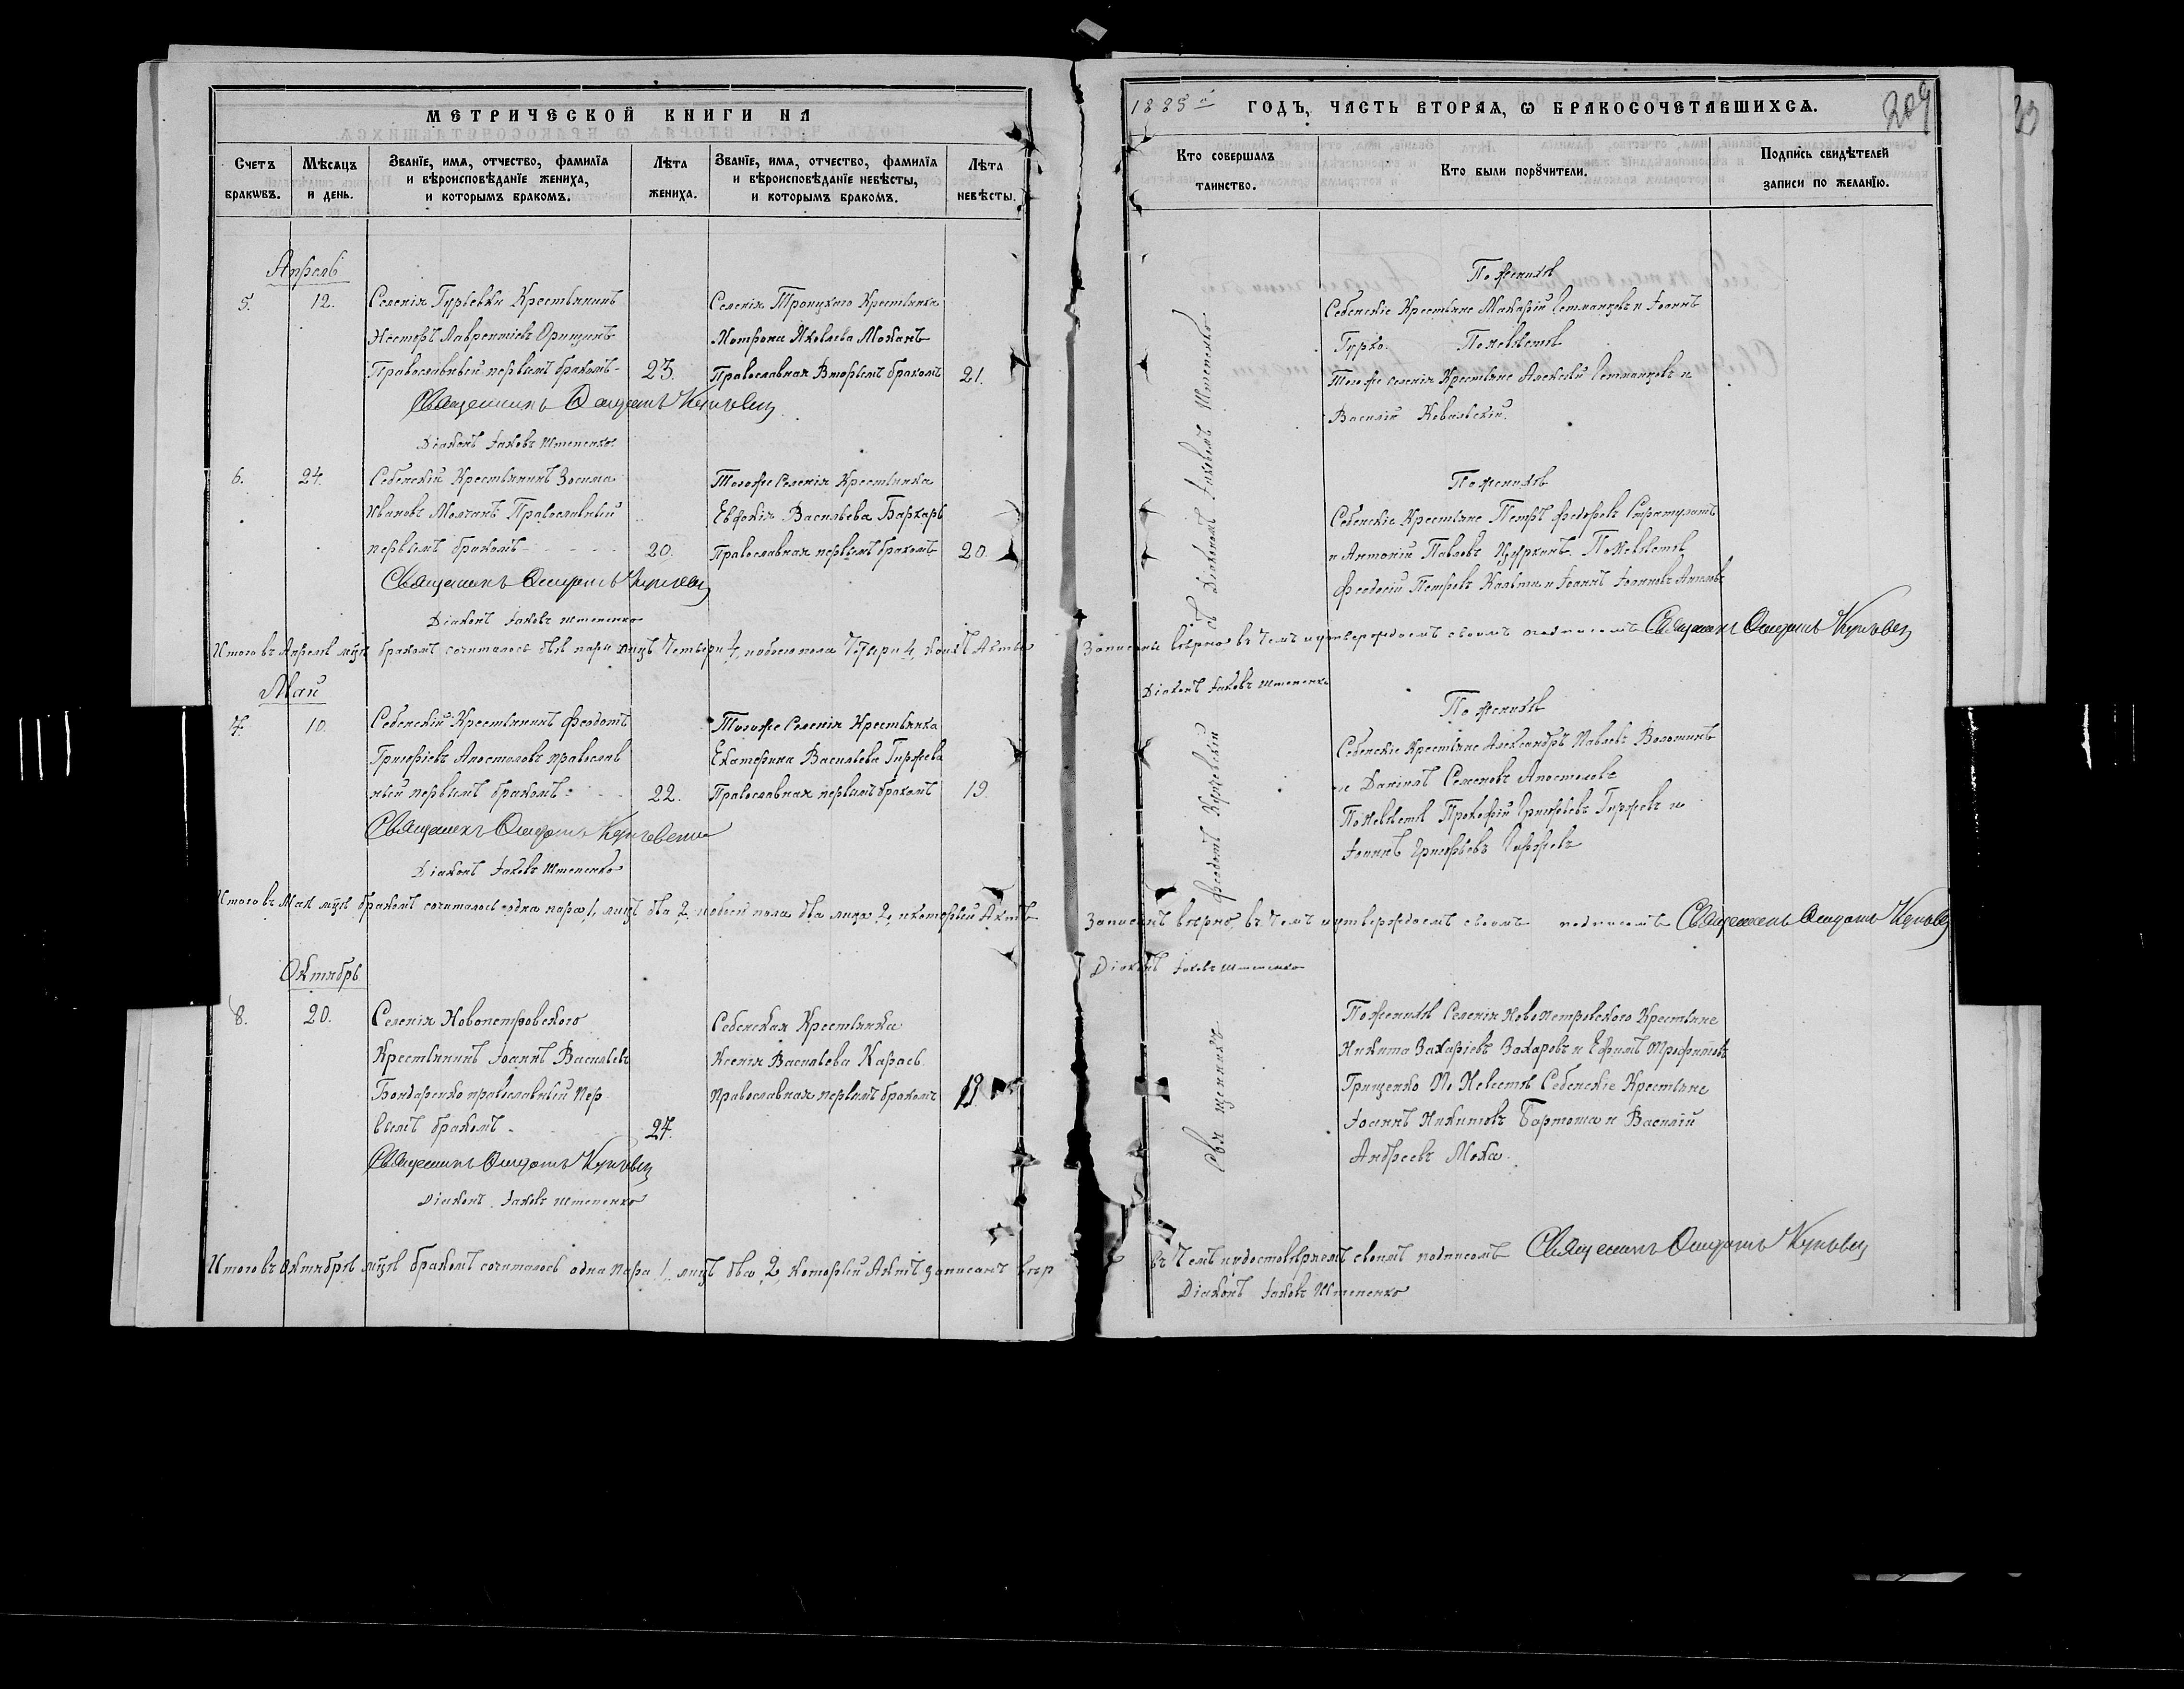 МЕТРИЧЕСКОЙ КНИГИ НА
Счетъ браковъ.
Мѣсяцъ и день.
Званїе, имя, отчество, фамилїя и вѣроисповѣданїе жениха, и которымъ бракомъ.
Лѣта жениха.
Званїе, имя, отчество, фамилїя и вѣроисповѣданїе невѣсты, и которымъ бракомъ.
Лѣта невѣсты.
Апрель
5. 12.
Селенія Гурьевки Крестьянинъ
Несторъ Лаврентіевъ
Православный первымъ бракомъ
23.
Селенія Троицкаго Крестьянка
Мотрона Яковлева Моканъ
Православная Вторымъ бракомъ
21.
Священникъ
Діаконъ Іаковъ Штепенко
6. 24.
Себенскій Крестьянинъ Зосима
Ивановъ Молчанъ Православный
первымъ бракомъ
20.
Тогоже Селенія Крестьянка
Евфокія Васильева Бархарь
Православная первымъ бракомъ
20.
Священникъ
Діаконъ Іаковъ Штепенко
Итого въ Апрелѣ мцѣ бракомъ сочиталось двѣ пары лицъ Четыри 4, обоего пола Четыри 4, коихъ Акты
Май
7. 10.
Себенскій Крестьянинъ Феодотъ
Григоріевъ Апостоловъ православ
ный первымъ бракомъ
22.
Тогоже Селенія Крестьянка
Екатерина Васильева Гиржева
Православная первымъ бракомъ
19.
Священникъ
Діаконъ Іаковъ Штепенко
Итого въ Маѣ мцѣ бракомъ сочиталось одна пара 1, лицъ два 2, обоего пола два лица 2, который Актъ
Октябрь
8. 20.
Селенія Новопетровского
Крестьянинъ Іоаннъ Васильевъ
Бондаренко православный пер
вымъ бракомъ
27.
Себенская Крестьянка
Ксенія Васильева Карась
Православная первымъ бракомъ
19.
Священникъ
Діаконъ Іаковъ Штепенко
Итого въ Октябрѣ мцѣ бракомъ сочиталось одна пара 1, лицъ два 2, который Актъ записанъ вѣр
1885 й ГОДЪ, ЧАСТЬ ВТОРАЯ, Ѡ БРАКОСОЧЕТАВШИХСЯ.
209
Кто совершалъ таинство.
Кто были порꙋчители.
Подпись свидѣтелей записи по желанїю.
Священникъ Феодотъ Куновскій съ Діакономъ Іаковомъ Штепенко
По женихѣ
Себенскіе Крестьяне Макарій Гетманцовъ и Іоаннъ
Гурко. По невѣстѣ
Тогоже селенія Крестьяне Алексѣй Гетманцовъ и
Василій Ковальскій.
По женихѣ
Себенскіе Крестьяне Петръ Федоровъ
и Антоній Павловъ Цурканъ. По невѣстѣ
Феодосій Петровъ и Іоаннъ Іоанновъ
Записаны вѣрно въ чемъ и утверждаемъ своимъ подписомъ Священникъ
Діаконъ Іаковъ Штепенко
По женихѣ
Себенскіе Крестьяне Александръ Павловъ Волошинъ
и Даніилъ Семеновъ Апостоловъ
По невѣстѣ Прокофій Григорьевъ Гиржевъ и
Іоаннъ Григорьевъ Гиржевъ
Записанъ вѣрно, въ чемъ и утверждаемъ своимъ подписомъ Священникъ
Діаконъ Іаковъ Штепенко
По женихѣ Селенія Новопетровского Крестьяне
Никита Захаріевъ Захаровъ и Ефимъ Трофимовъ
Грищенко По Невѣстѣ Себенскіе Крестьяне
Іоаннъ Никитовъ Бартоша и Василій
Андреевъ Мока.
въ чемъ и удостовѣряемъ своимъ подписомъ Священникъ
Діаконъ Іаковъ Штепенко